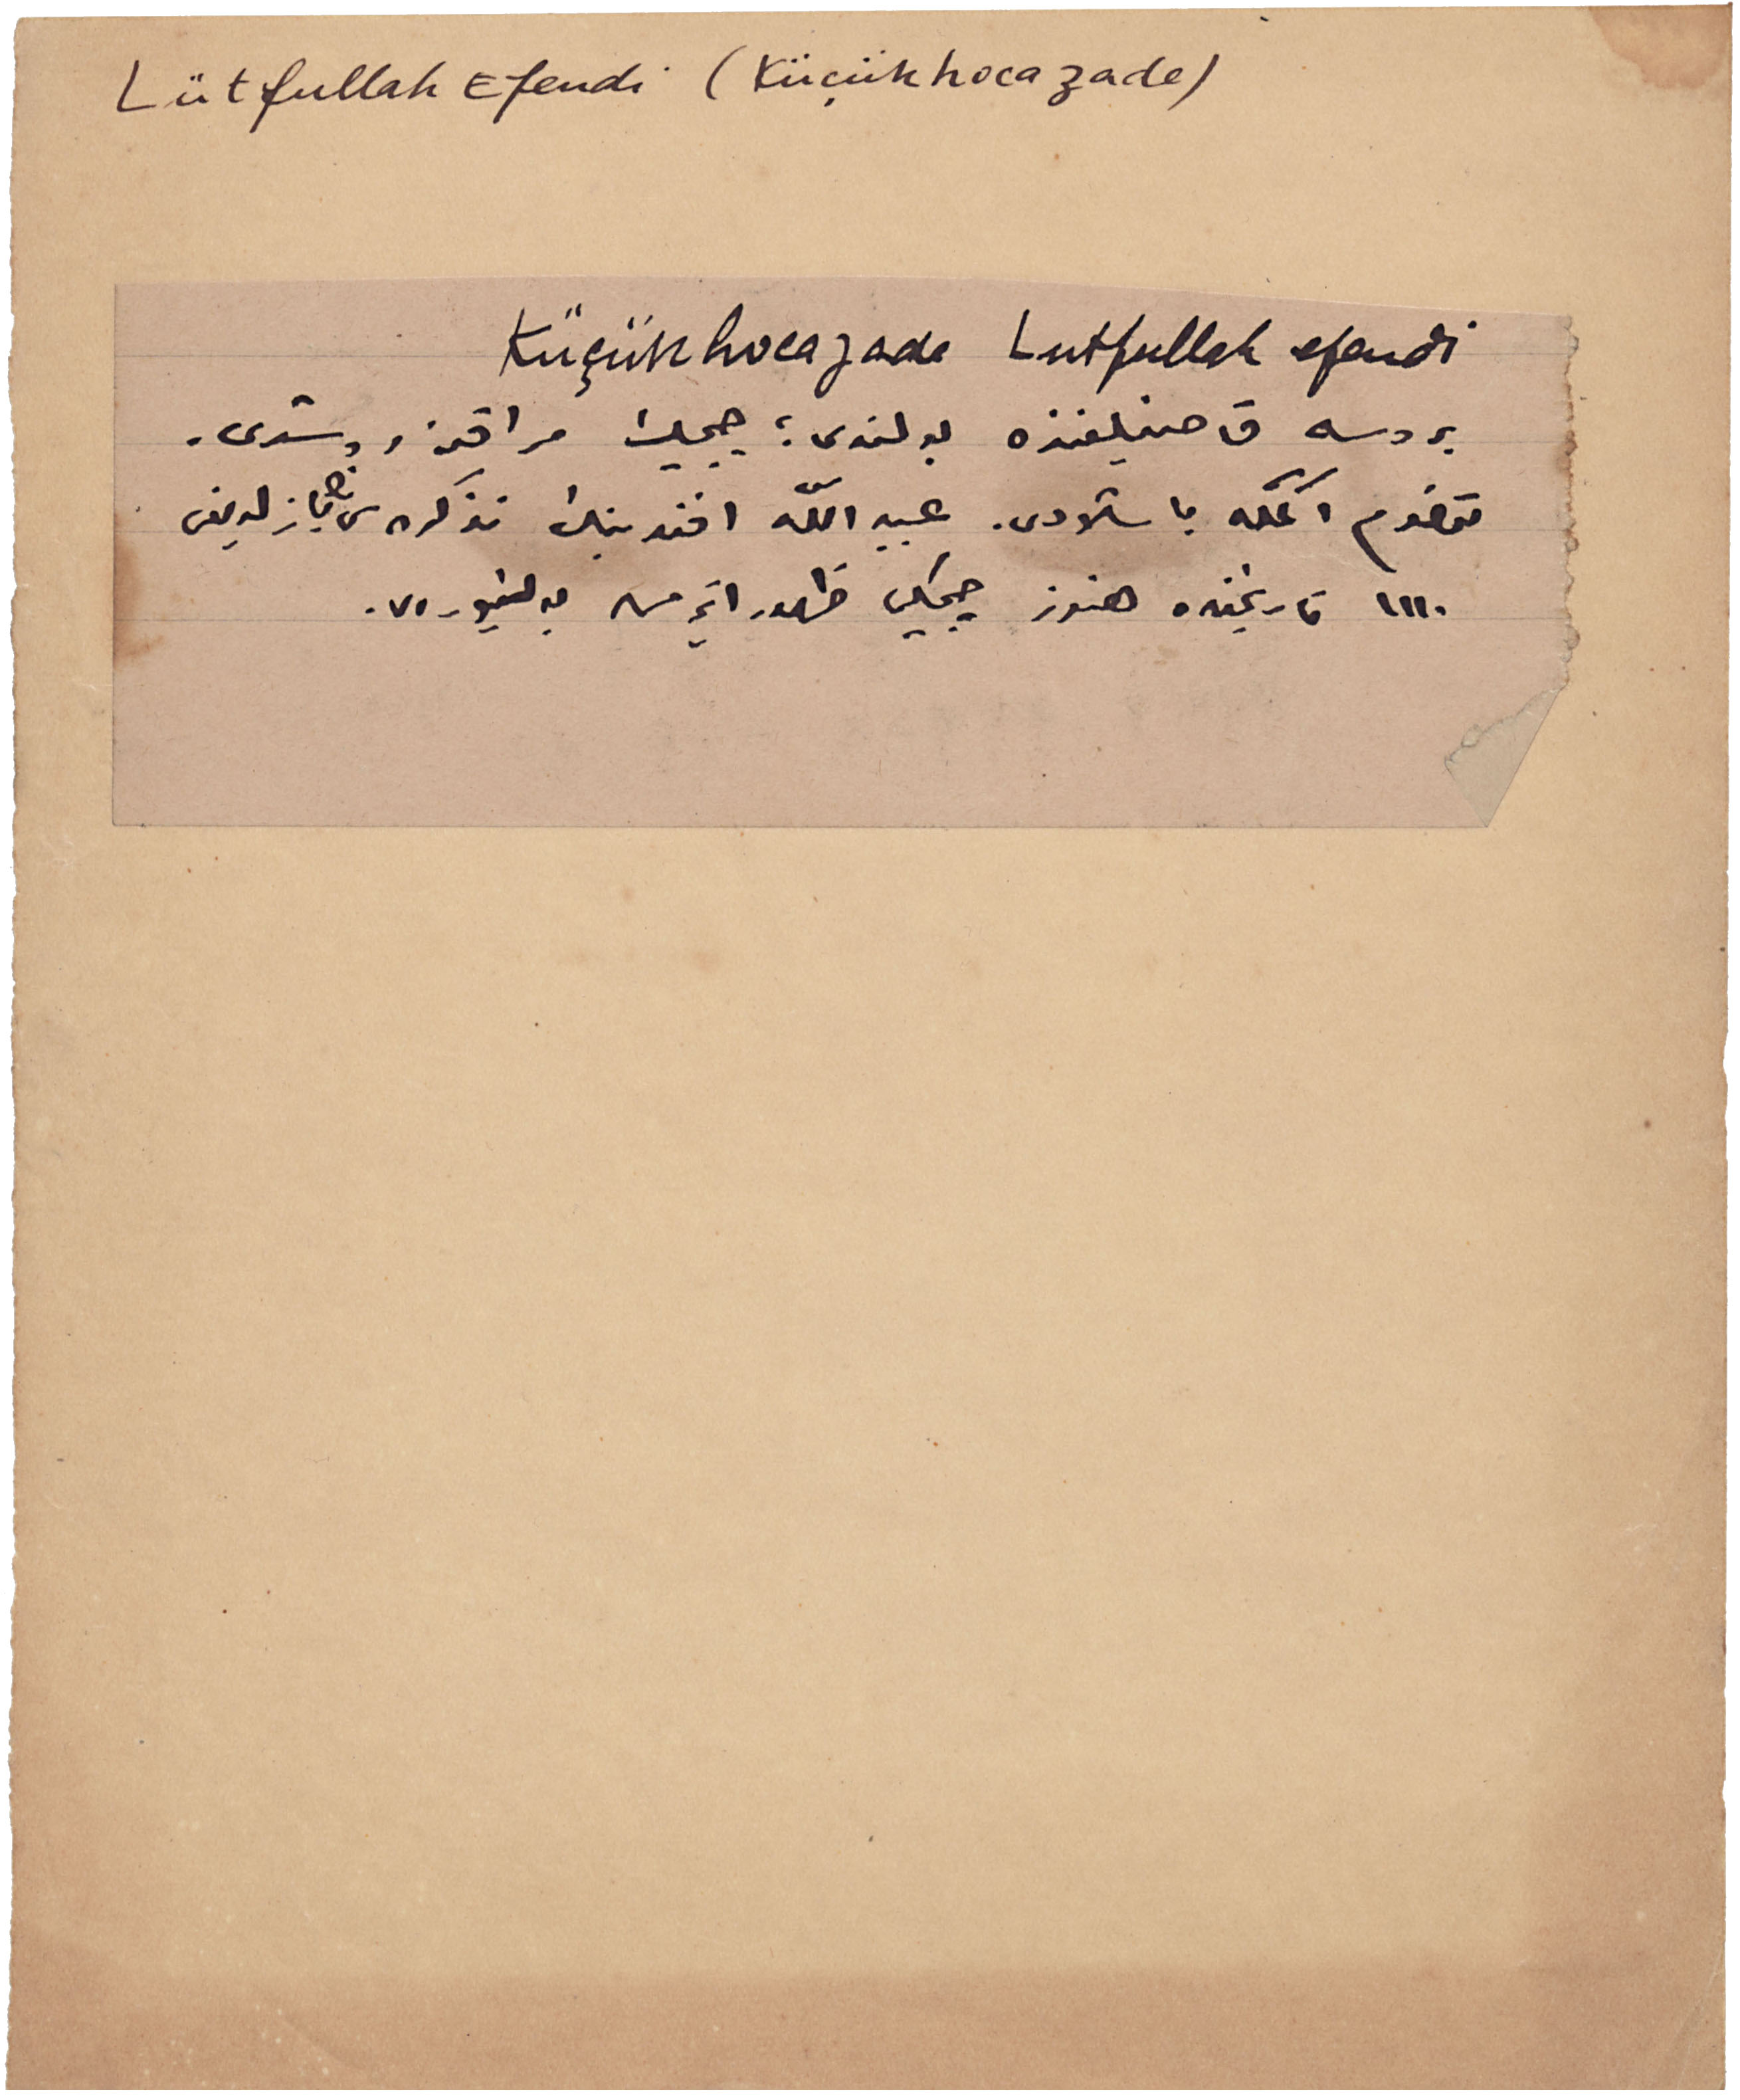 Lütfullah Efendi (Küçükhocazade)
Küçükhocazade Lutfullah efendi
بروسه قاضیلغنده بولندی؛ چیچك مراقنه دوشدی.
تخم اكمكه باشلادی. عبید اللّه افندینك تذكره سی نك یازلدیغی
١١١٠ تاریخنده هنوز چیچكی ظهور ایتمه مش بولنیوردی.